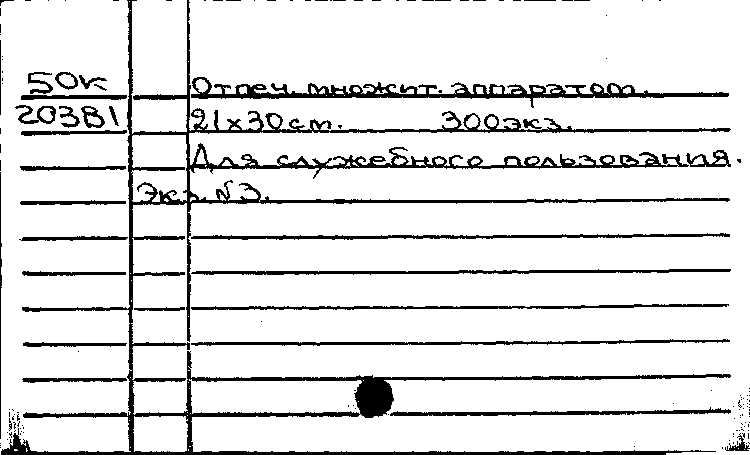 50к Отпеч. множит. аппаратом.
203В1 21х30см. 300экз.
Для служебного пользования.
Экз. №3.